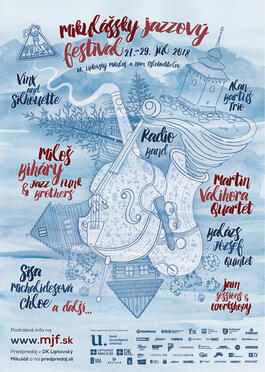 Mikulášsky jazzový
festival 27.-29. júl 2018
DK Liptovský Mikuláš a Nám. Osloboditeľov
Vinx
and
Silhouette
Alan
Bartuš
Trio
Radio
Band
Miloš
Biháry
& Jazz Funk
Brothers
Martin
Valihora
Quartet
Balázs
József
Quintet
Sisa
Michalidesová
Chloe
a ďalší...
jam
sessions &
workshopy
Podrobné info na
www.mjf.sk
Predpredaj v DK Liptovský
Mikuláš a na predpredaj.sk
u.
fond
na podporu
umenia